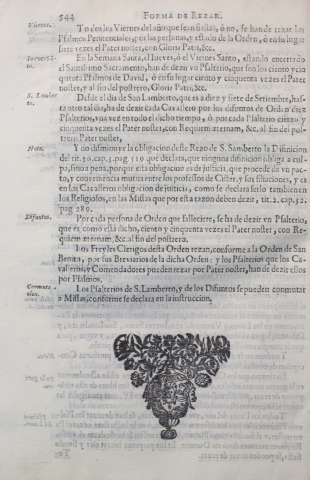 544 FORMA DE REZAR.
Viernes. Todos los Viernes del año que sean fiestas, ò no, se han de rezar los
Psalmos Penitenciales, y en las personas, y estado de la Orden, ò en su lugar
siete vezes el Pater noster, con Gloria Patri, &c.
En la Semana Santa, el Iueves, ò el Viernes Santo, estando encerrado
el Santissimo Sacramento, han de rezar vn Psalterio, que son los ciento y cin
quenta Psalmos de David, ò en su lugar ciento y cinquenta vezes el Pater
noster, y al fin del postrero, Gloria Patri, &c.
Desde el dia de San Lamberto, que es a diez y siete de Setiembre, has-
ta otro tal dia, ha de rezar cada Cavallero por los difuntos de Orden diez
Psalterios, vna vez en todo el dicho tiempo, ò por cada Psalterio ciento y
cinquenta vezes el Pater noster, con Requiem æternam, &c. al fin del pos-
trero Pater noster.
Nota. Y no disminuye la obligacion deste Rezo de S. Lamberto la Difinicion
del tit. 30. cap. 1. pag. 319. que declara, que ninguna difinicion obliga a cul-
pa, sino a pena, porque esta obligacion es de justicia, que procede de vn pac-
to, y conveniencia mutua entre los professos de Cister, y sus filiaciones, y ca
en los Cavalleros obligacion de justicia, como se declara serlo tambien en
los Religiosos, en las Missas que por esta razon deben dezir, tit. 2. cap. 32.
pag. 289.
Difuntos. Por cada persona de Orden que falleciere, se ha de rezar vn Psalterio,
que es, como està dicho, ciento y cinquenta vezes el Pater noster, con Re-
quiem æternam, &c. al fin del postrero.
Los Freyles Clerigos desta Orden rezan, conforme a la Orden de San
Benito, por sus Breviarios de la dicha Orden: y los Psalterios que los Ca-
valleros, y Comendadores pueden rezar por Pater noster, han de dezir ellos
por Psalmos.
Los Psalterios de S. Lamberto, y de los Difuntos se pueden conmutar
a Missas, conforme se declara en la instruccion.